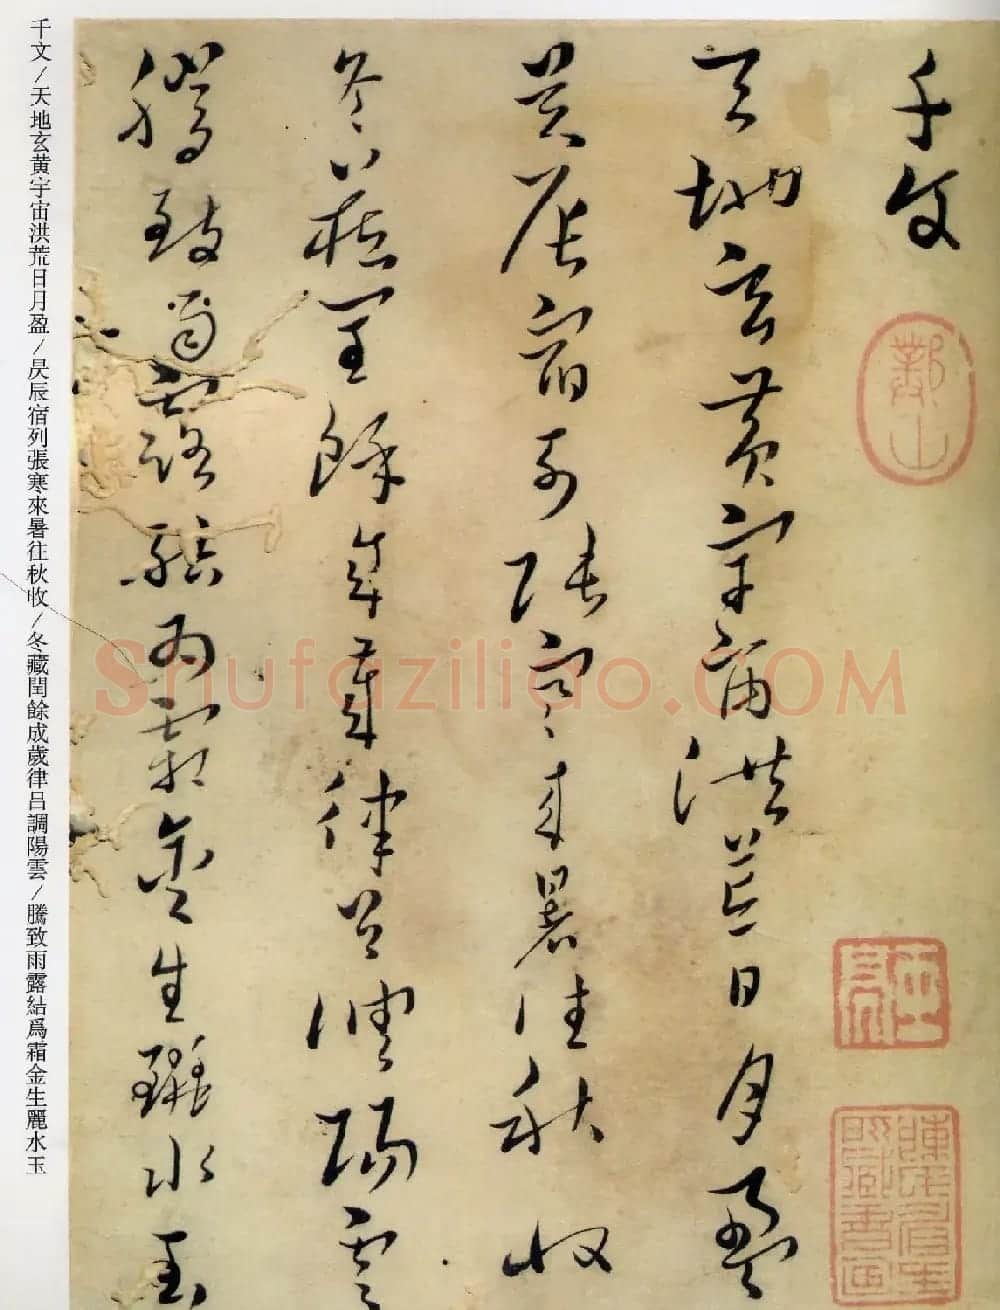 千文
天地玄黄宇宙洪荒日月盈
昃辰宿列張寒來暑往秋收
冬藏閏餘成歲律吕調陽雲
騰致雨露結爲霜金生麗水玉
千文/天地玄黄宇宙洪荒日月盈/昃辰宿列張寒來暑往秋收/冬藏閏餘成歲律吕調陽雲/騰致雨露結爲霜金生麗水玉
Shufaziliao.COM